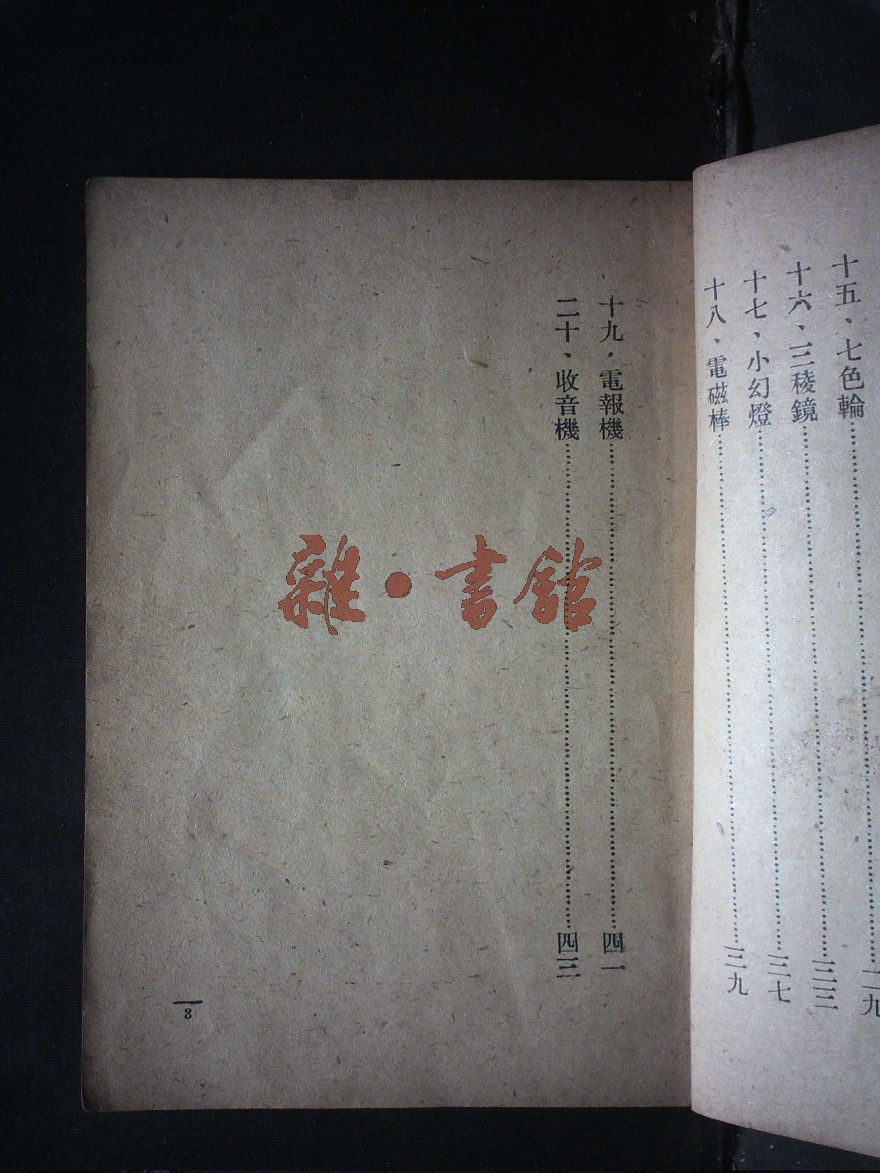 十五、七色輪……二九
十六、三稜鏡……三三
十七、小幻燈……三七
十八、電磁棒……三九
十九，電報機……四一
二十、收音機……四三
3
雜•書館